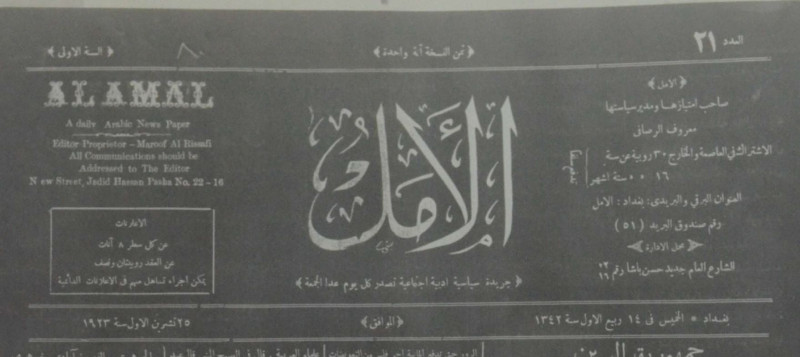 العدد ٢١
﴿ ثمن النسخة آنة واحدة ﴾
﴿ السنة الاولى ﴾
﴿ الامل ﴾
صاحب امتيازها ومدير سياستها
معروف الرصافي
الاشتراك في العاصمة والخارج ٣٠ روبية عن سنة
١٦ ٠٠ ستة اشهر
العنوان البرقي والبريدي: بغداد: الامل
رقم صندوق البريد ( ٥١ )
﴿ محل الادارة ﴾
الشارع العام جديد حسن باشا رقم ٢٢/١٦
الأمل
﴿ جريدة سياسية ادبية اجتماعية تصدر كل يوم عدا الجمعة ﴾
AL AMAL
A daily Arabic News Paper
Editor-Proprietor - Maroof Al Risafi
All Communications should be
Addressed to The Editor
New Street, Jadid Hassan Pasha No. 22 - 16
الاعلانات
عن كل سطر ٨ آنات
عن العقد روبيتان ونصف
يمكن اجراء تساهل مهم في الاعلانات المتأتية
بغداد * الخميس في ١٤ ربيع الاول سنة ١٣٤٢
﴿ الموافق ﴾
٢٥ تشرين الاول سنة ١٩٢٣